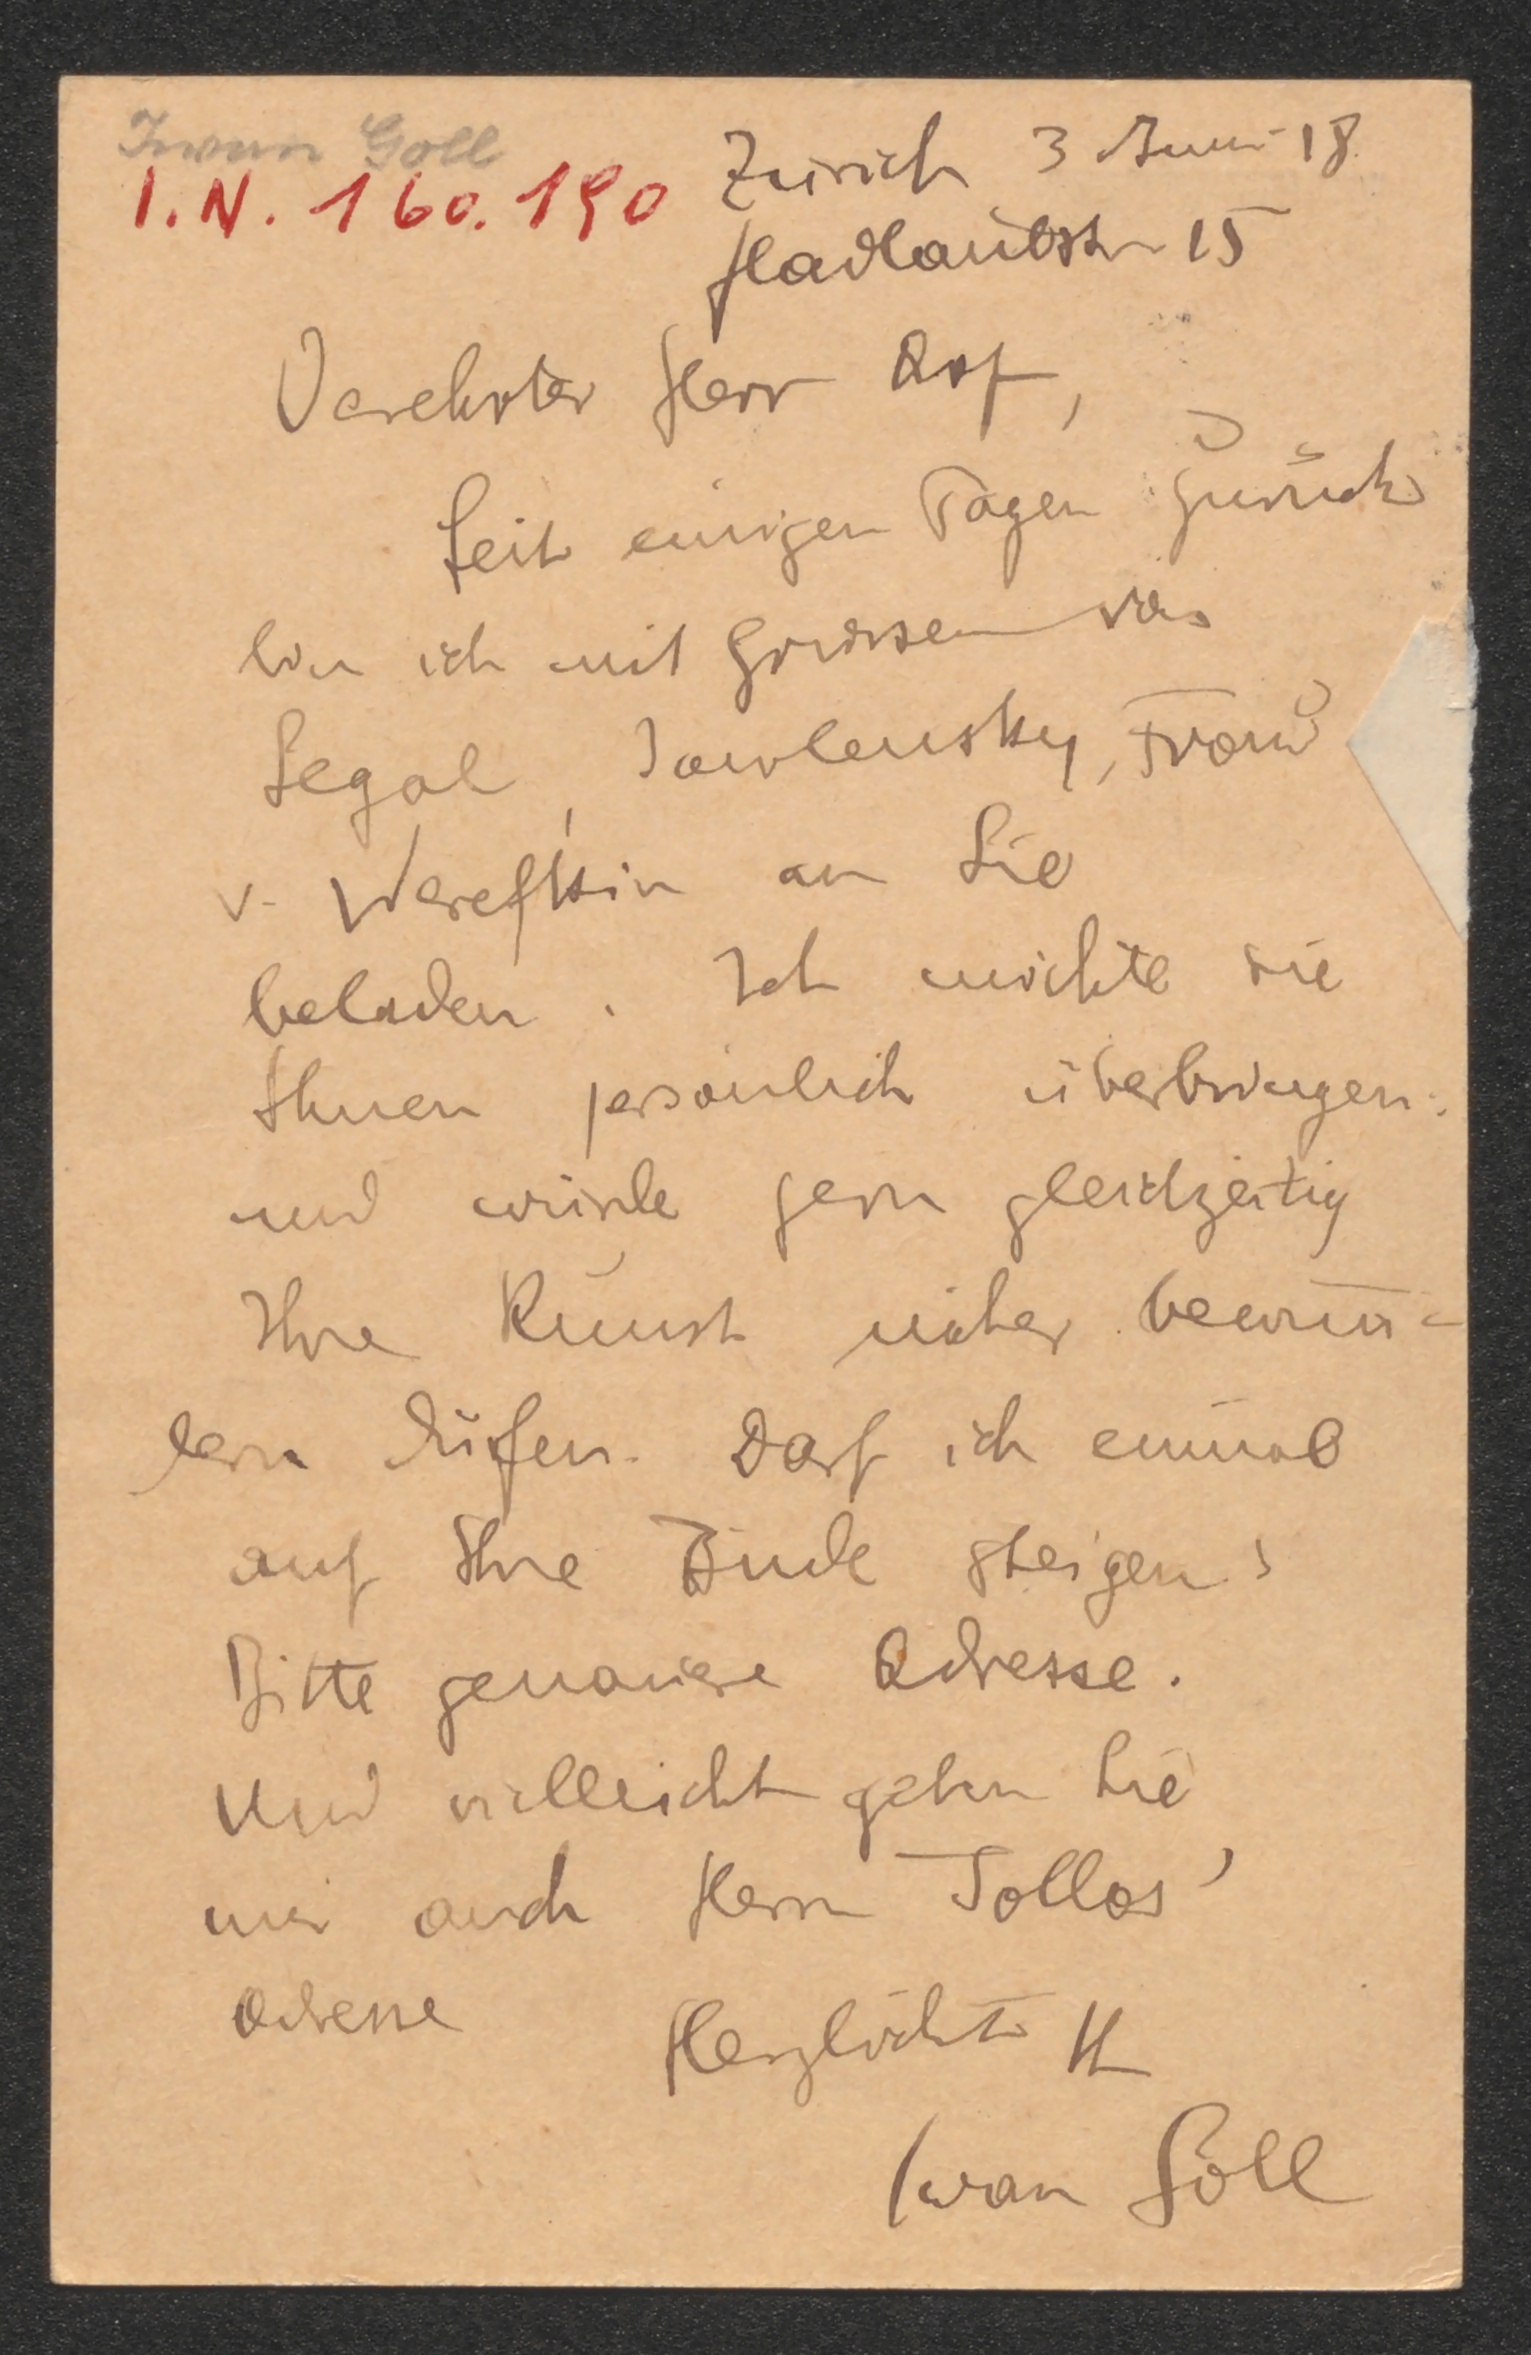 Iwan Goll
I.N. 160.190
Zürich 3 Juni 18
Hadlaubstr 15
Verehrter Herr Arp,
Seit einigen Tagen zurück
bin ich mit Grüssen von
Segal, Jawlensky, Frau
v. Werefkin an Sie
beladen. Ich möchte sie
Ihnen persönlich überbringen
und würde gern gleichzeitig
Ihre Kunst näher bewun-
dern dürfen. Darf ich einmal
auf Ihre Bude steigen?
Bitte genauere Adresse.
Und vielleicht geben Sie
mir auch Herrn
Adresse
Herzlichst Ihr
Iwan Goll